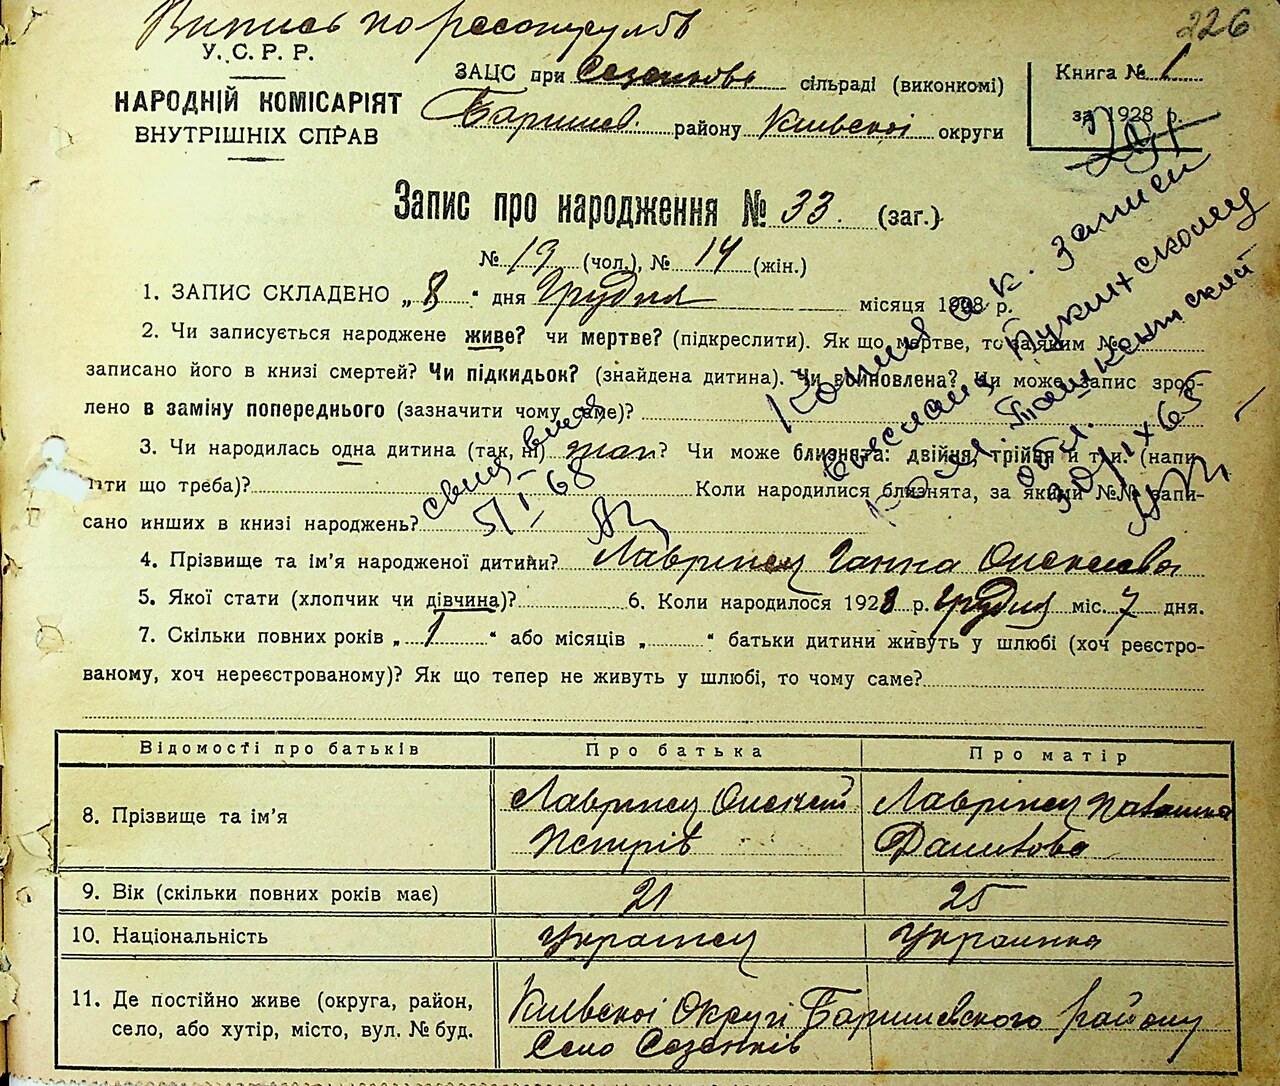 Випись по
226
У.С.Р.Р.
НАРОДНІЙ КОМІСАРІЯТ
ВНУТРІШНІХ СПРАВ
ЗАЦС при Сезенкове сільраді (виконкомі)
Баришев. району Київської округи
Книга № 1
за 1928 р.
Запис про народження № 33. (заг.)
№ 19 (чол.), № 14 (жін.)
1. ЗАПИС СКЛАДЕНО „ 8 “ дня Грудня місяця 1928 р.
2. Чи записується народжене живе? чи мертве? (підкреслити). Як що мертве, то за яким №
записано його в книзі смертей? Чи підкидьок? (знайдена дитина). Чи войновлена? Чи може запис зроб-
лено в заміну попереднього (зазначити чому саме)?
3. Чи народилась одна дитина (так, ні) так? Чи може близнята: двійня, трійня й т. и. (напи-
сати що треба)? Коли народилися близнята, за якими №№ запи-
сано инших в книзі народжень?
Копия а. к. записи
выслана
обл. Ташкентский
30/IX 65
5/I-68
4. Прізвище та ім'я народженої дитини? Лавринец Ганна Олексієва
5. Якої стати (хлопчик чи дівчина)? 6. Коли народилося 1928 р. Грудня міс. 7 дня.
7. Скільки повних років „ 1 “ або місяців „ “ батьки дитини живуть у шлюбі (хоч реєстро-
ваному, хоч нереєстрованому)? Як що тепер не живуть у шлюбі, то чому саме?
Відомості про батьків Про батька Про матір
8. Прізвище та ім'я Лавринец Олексій Лаврінец Наталка
Петрів Данилова
9. Вік (скільки повних років має) 21 25
10. Національність Українец Украинка
11. Де постійно живе (округа, район, Київскоі Округі Баришевского району
село, або хутір, місто, вул. № буд. Село Сезенків